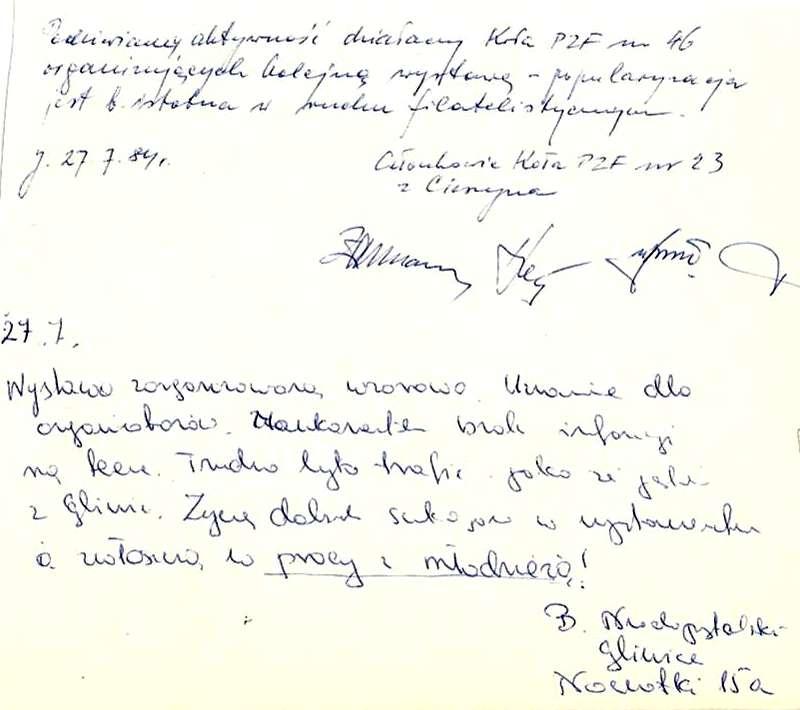 Podziwiamy aktywność działaczy Koła PZF nr 46
organizujących kolejną wystawę - popularyzacja
jest b. istotna w ruchu filatelistycznym.
J. 27 7. 84 r.
Członkowie Koła PZF nr 23
z Cieszyna
27. 7.
Wystawa zorganizowana wzorowo. Uznanie dla
organizatorów. brak informacji
na teren. Trudno było trafić jako że
z Gliwic. Życzę dalszych sukcesów w
a zwłaszcza w pracy z młodzieżą!
B.
Gliwice
Nowotki 15a